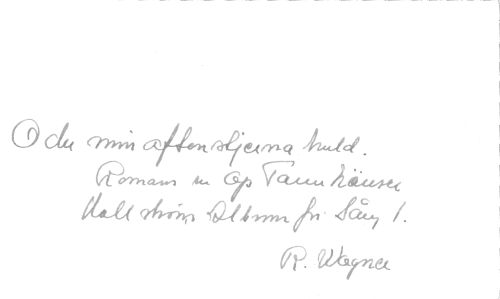 O du min aftonstjerna huld.
Romans ur Op Tannhäuser
Hallströms Album för Sång 1.
R. Wagner